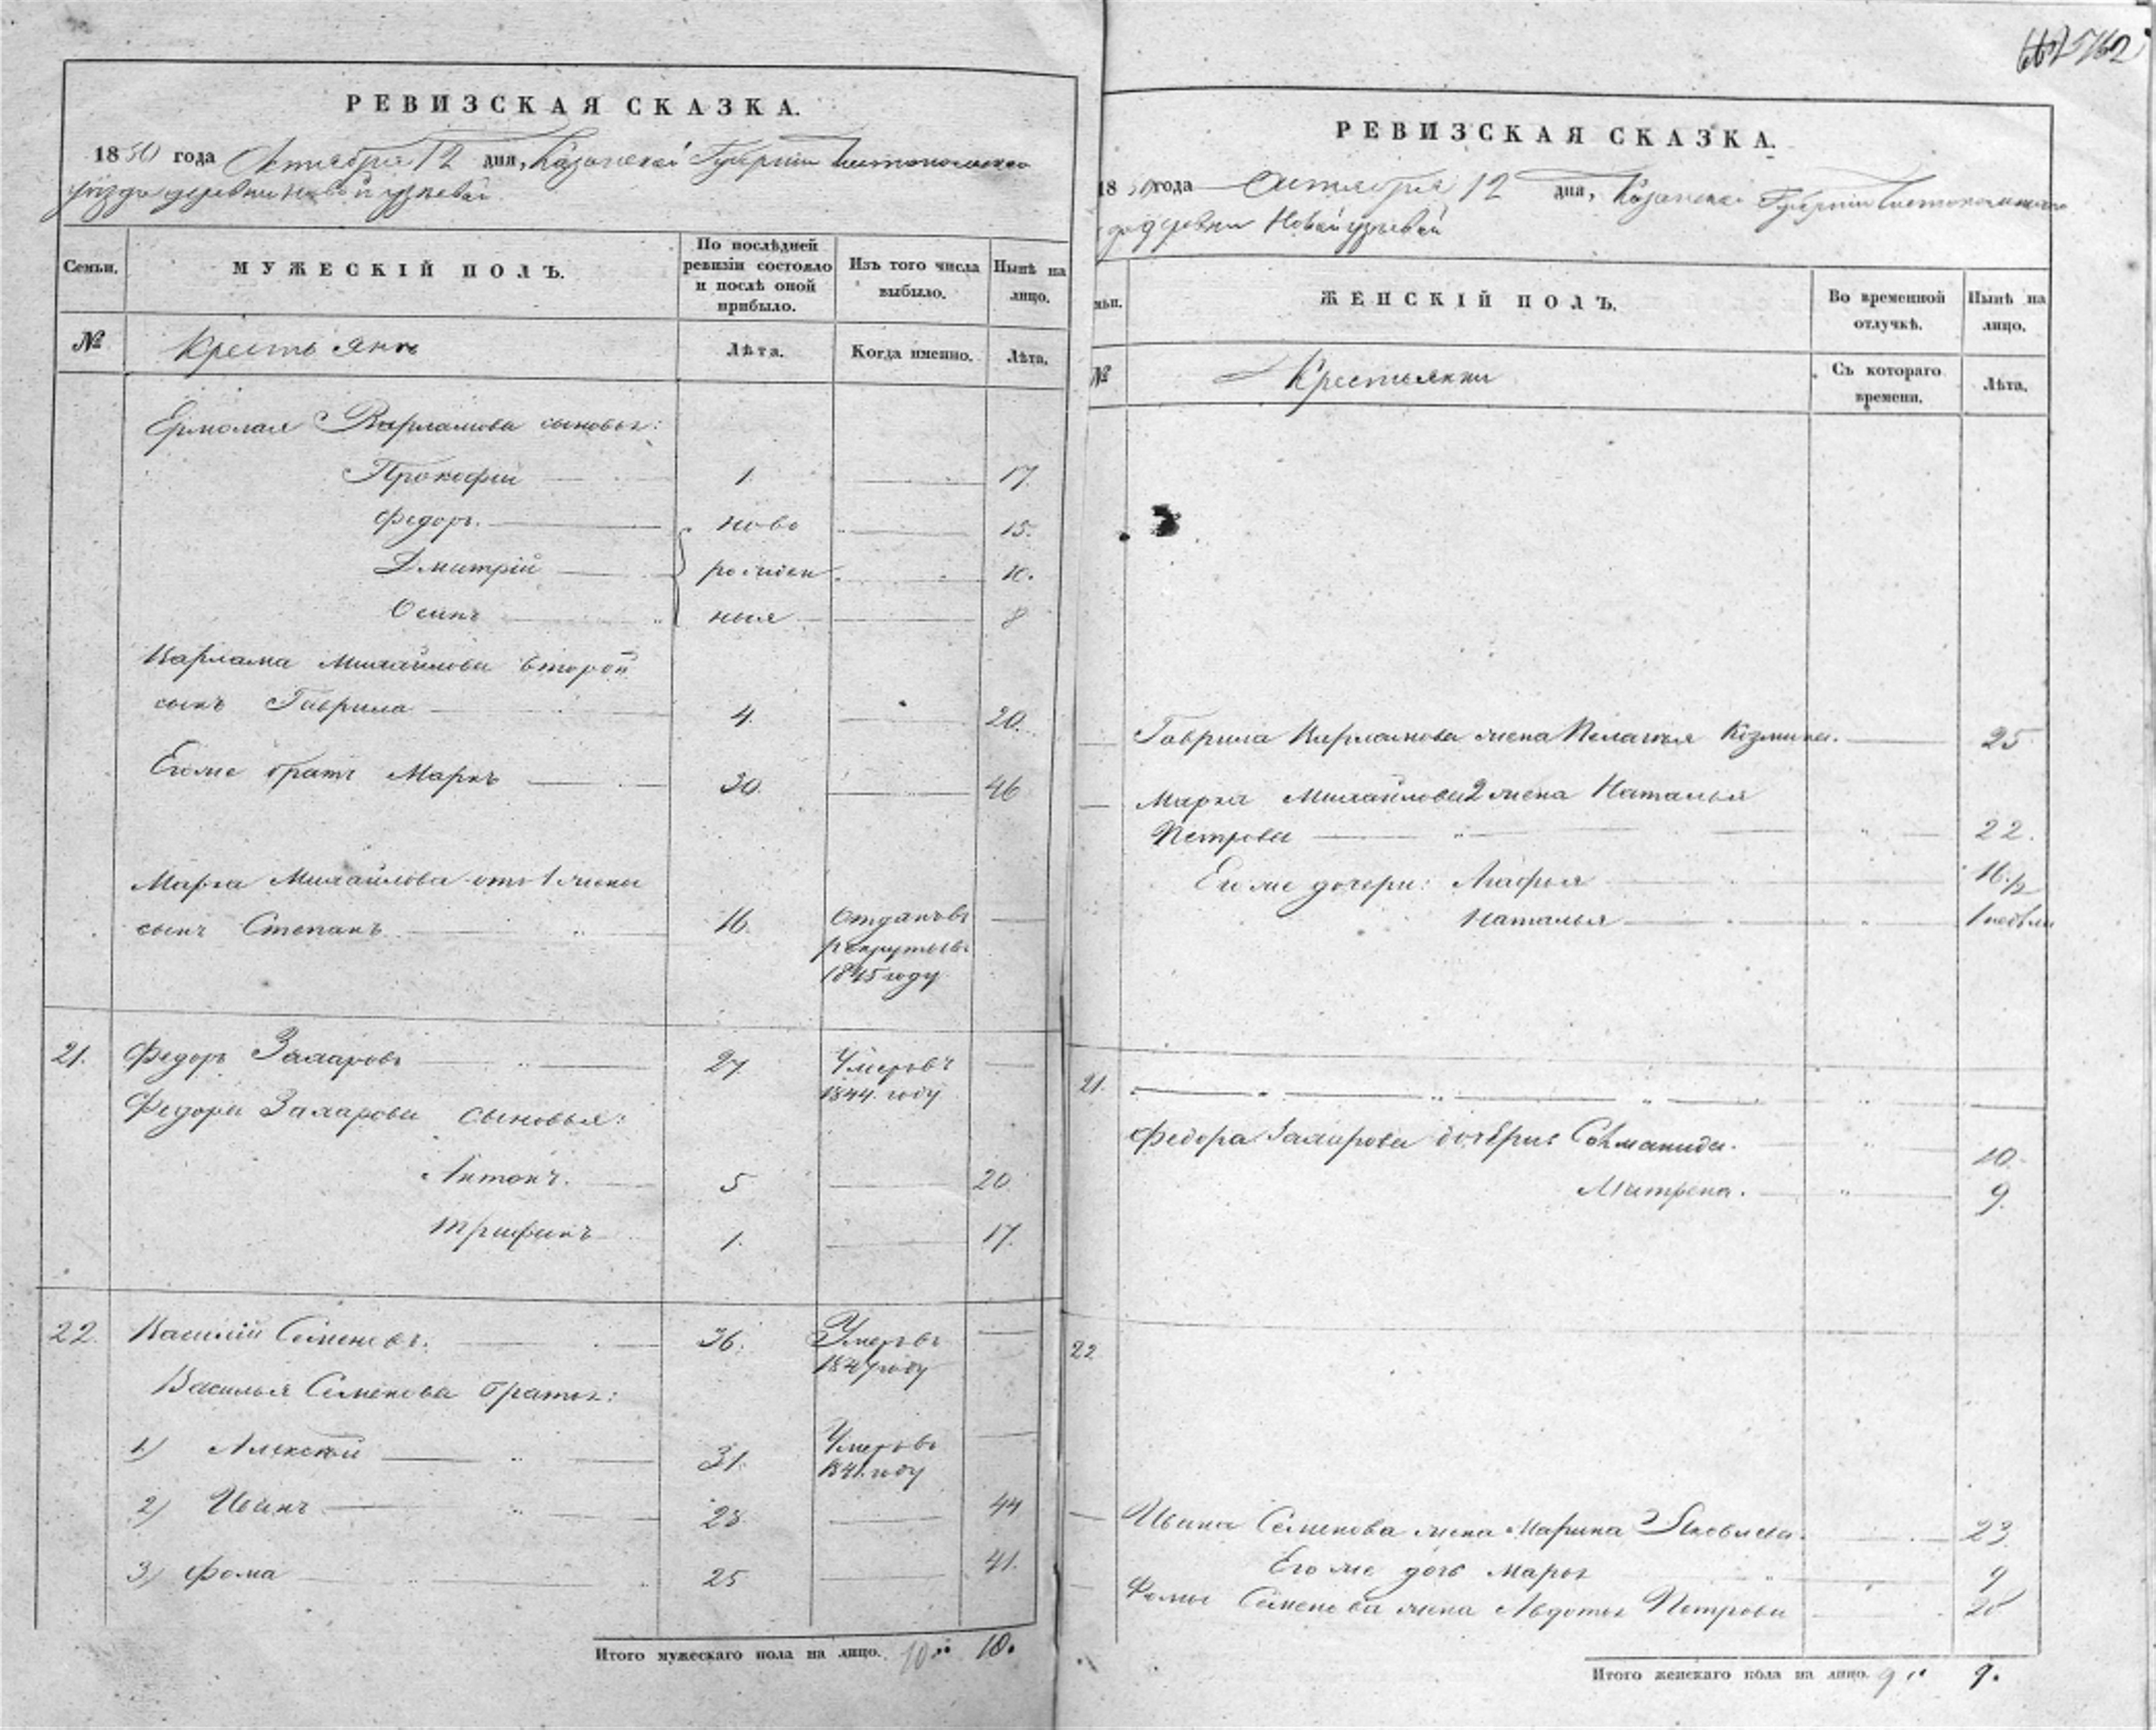 РЕВИЗСКАЯ СКАЗКА.
1850 года Октября 12 дня, Казанской Губернiи Чистопольскаго
уѣзда деревни Новой
Семьи.
МУЖЕСКІЙ ПОЛЪ.
По послѣдней ревизіи состояло и послѣ оной прибыло.
Изъ того числа выбыло.
Нынѣ на лицо.
№
Крестьяне
Лѣта.
Когда именно.
Лѣта.
Ермолая Варламова сыновья:
Прокофiй 1. 17.
Федоръ. ново 15.
Дмитрiй рожден 10.
Осипъ ныя 8
Варлама Михайлова второй
сынъ Гаврила 4. 20.
Его же братъ Маркъ 30. 46
Марка Михайлова отъ 1 жены
сынъ Степанъ 16. Отданъ въ
рекруты въ
1845 году
21. Федоръ Захаровъ 27. Умеръ въ
1844. году
Федора Захарова сыновья:
Антонъ. 5 20
Трифонъ 1. 17.
22. Василiй Семеновъ. 36. Умеръ въ
1847 году
Василья Семенова братья:
1) Алексѣй 31. Умеръ въ
1841. году
2) Иванъ 28 44
3) Фома 25 41.
Итого мужескаго пола на лицо. 10 10.
РЕВИЗСКАЯ СКАЗКА.
1850 года Октября 12 дня, Казанской Губернiи Чистопольскаго
деревни Новой
ЖЕНСКІЙ ПОЛЪ.
Во временной отлучкѣ.
Нынѣ на лицо.
№
Крестьянки
Съ котораго времени.
Лѣта.
Гаврила Варламова жена Пелагея Козмина. 25
Марка Михайлова 2 жена Наталья
Петрова 22.
Его же дочери: Агафья
Наталья 1 недѣли
21.
Федора Захарова дочери 10.
Матрена. 9.
22
Ивана Семенова жена Марина Яковлева. 23.
Его же дочь Марья 9
Фомы Семенова жена Авдотья Петрова
Итого женскаго пола на лицо. 9 9.